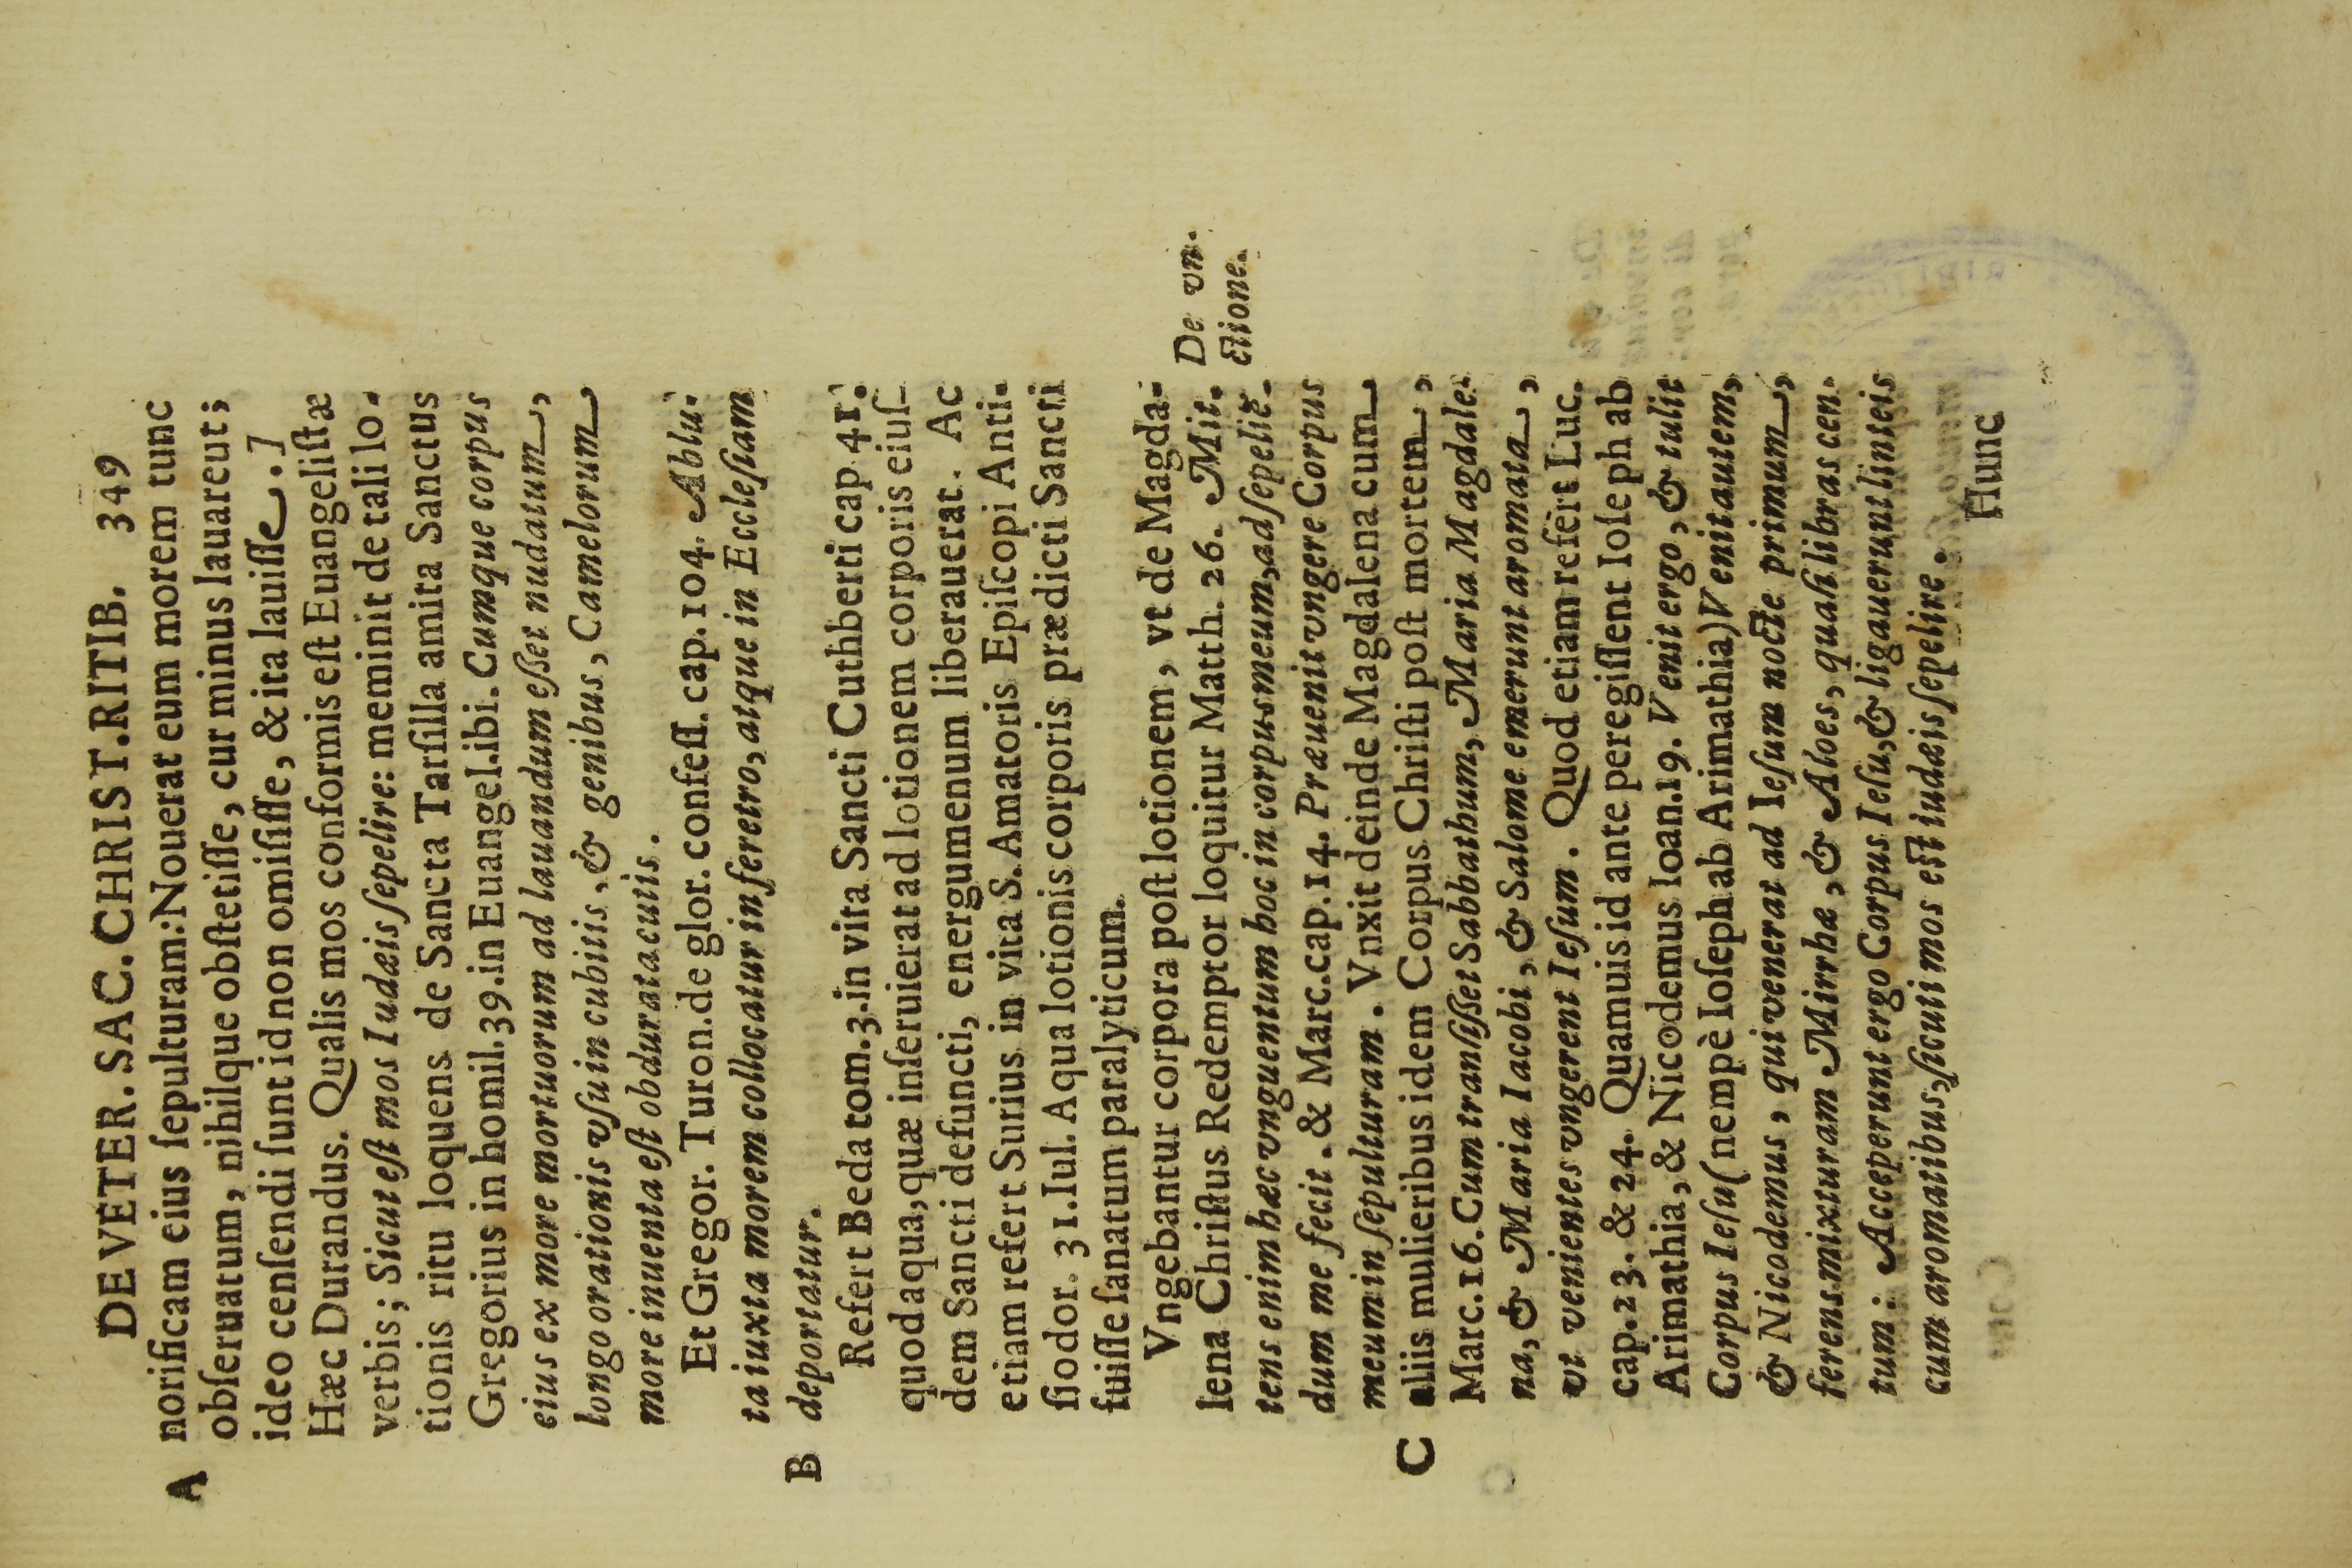 DE VETER. SAC. CHRIST. RITIB. 349
A norificam eius ſepulturam: Nouerat eum morem tunc
obſeruatum, nihilque obſtetiſſe, cur minus lauareut;
ideo cenſendi ſunt id non omiſiſſe, & ita lauiſſe.]
Hæc Durandus. Qualis mos conformis eſt Euangeliſtæ
verbis; Sicut eſt mos Iudæis ſepelire: meminit de tali lo-
tionis ritu loquens de Sancta Tarſilla amita Sanctus
Gregorius in homil. 39. in Euangel. ibi. Cumque corpus
eius ex more mortuorum ad lauandum eſſet nudatum,
longo orationis vſu in cubitis, & genibus, Camelorum
more inuenta eſt obdurata cutis.
Et Gregor. Turon. de glor. confeſſ. cap. 104. Ablu-
ta iuxta morem collocatur in feretro, atque in Eccleſiam
B deportatur.
Refert Beda tom. 3. in vita Sancti Cuthberti cap. 41.
quod aqua, quæ inſeruierat ad lotionem corporis eiuſ-
dem Sancti defuncti, energumenum liberauerat. Ac
etiam refert Surius in vita S. Amatoris Epiſcopi Anti-
ſiodor. 31. Iul. Aqua lotionis corporis prædicti Sancti
fuiſſe ſanatum paralyticum.
Vngebantur corpora poſt lotionem, vt de Magda-
lena Chriſtus Redemptor loquitur Matth. 26. Mit-
tens enim hæc vnguentum hoc in corpus meum, ad ſepeliē-
dum me fecit. & Marc. cap. 14. Præuenit vngere Corpus
meum in ſepulturam. Vnxit deinde Magdalena cum
C aliis mulieribus idem Corpus Chriſti poſt mortem,
Marc. 16. Cum tranſiſſet Sabbathum, Maria Magdale-
na, & Maria Iacobi, & Salome emerunt aromata,
vt venientes vngerent Ieſum. Quod etiam refert Luc.
cap. 23. & 24. Quamuis id ante peregiſſent Ioſeph ab
Arimathia, & Nicodemus Ioan. 19. Venit ergo, & tulit
Corpus Ieſu (nempè Ioſeph ab Arimathia) Venit autem,
& Nicodemus, qui venerat ad Ieſum nocte primum,
ferens mixturam Mirrhæ, & Aloes, quaſi libras cen-
tum: Acceperunt ergo Corpus Ieſu, & ligauerunt linteis
cum aromatibus, ſicuti mos eſt iudæis ſepelire.
Hunc
De vn-
ctione.